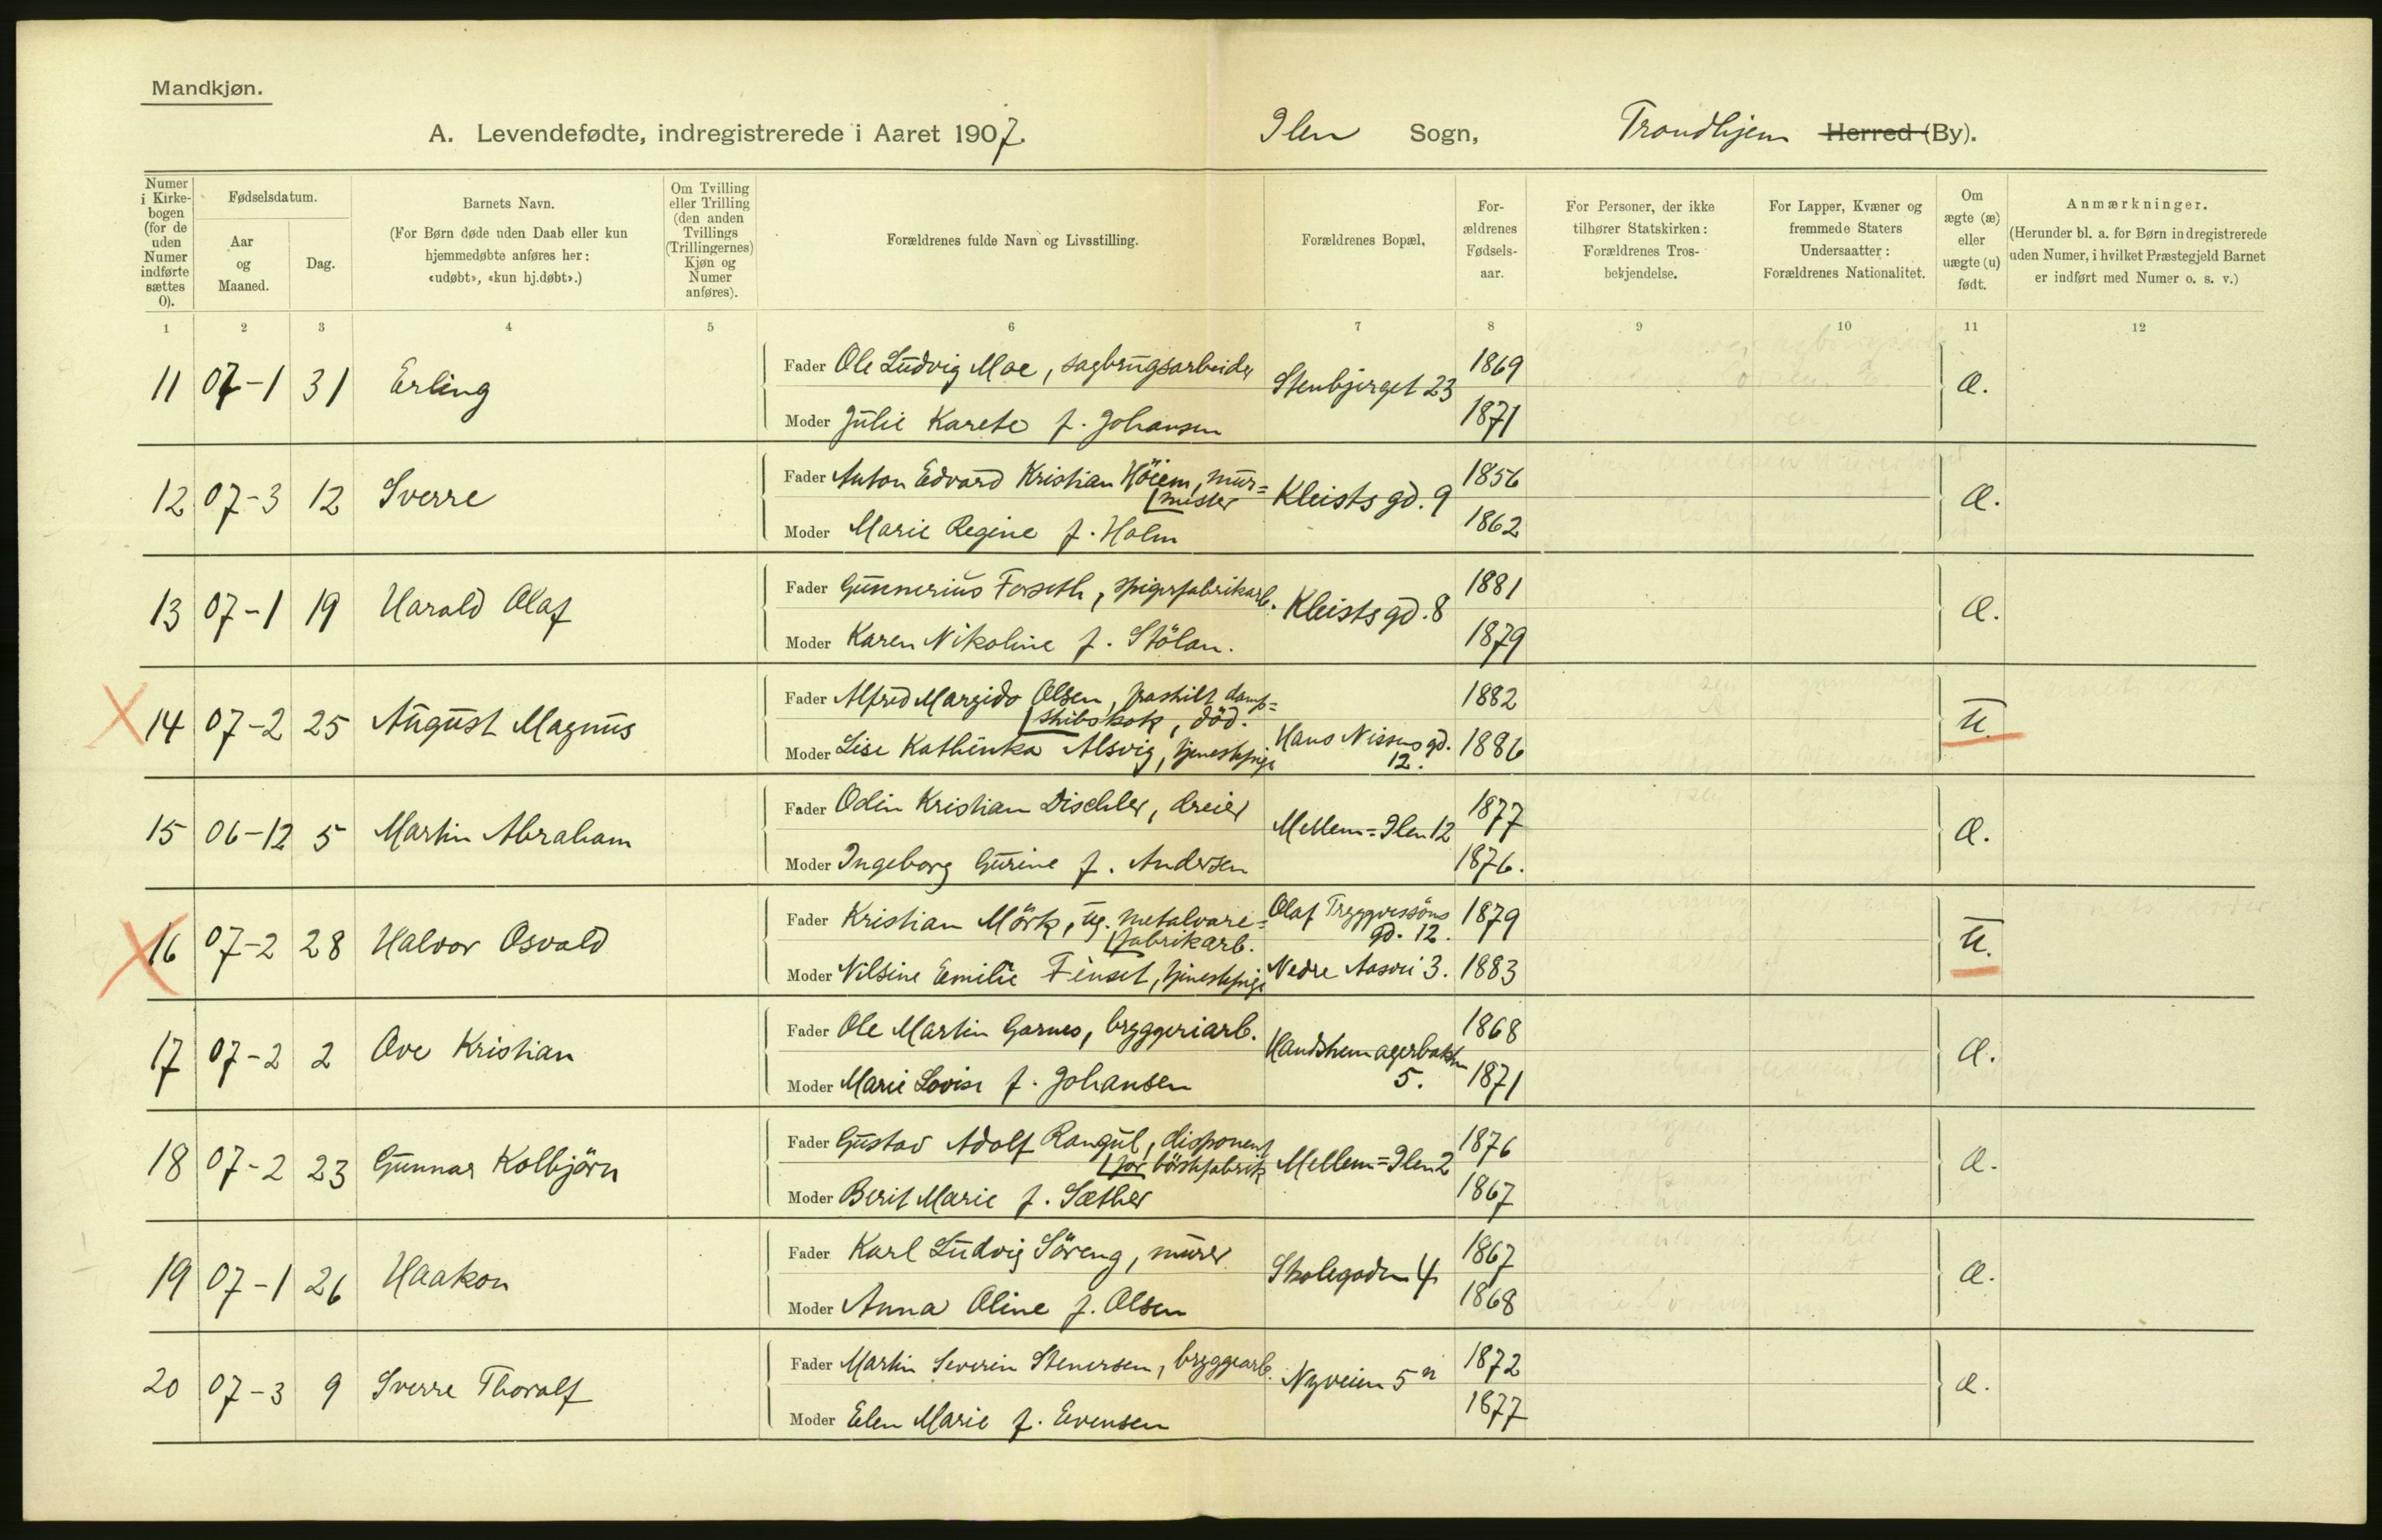 Mandkjøn.
A. Levendefødte, indregistrerede i Aaret 1907. Ilen Sogn, Trondhjem Herred (By).
Numer i Kirkebogen (for de uden Numer indførte sættes 0).
Fødselsdatum.
Aar og Maaned.
Dag.
Barnets Navn.
(For Børn døde uden Daab eller kun hjemmedøbte anføres her: «udøbt», «kun hj.døbt».)
Om Tvilling eller Trilling (den anden Tvillings (Trillingernes) Kjøn og Numer anføres).
Forældrenes fulde Navn og Livsstilling.
Forældrenes Bopæl,
For-ældrenes Fødsels-aar.
For Personer, der ikke tilhører Statskirken: Forældrenes Tros-bekjendelse.
For Lapper, Kvæner og fremmede Staters Undersaatter: Forældrenes Nationalitet.
Om ægte (æ) eller uægte (u) født.
Anmærkninger.
(Herunder bl. a. for Børn indregistrerede uden Numer, i hvilket Præstegjeld Barnet er indført med Numer o. s. v.)
1 2 3 4 5 6 7 8 9 10 11 12
11 07-1 31 Erling Fader Ole Ludvig Moe, sagbrugsarbeider Stenbjerget 23 1869 æ.
Moder Julie Karete f. Johansen 1871
12 07-3 12 Sverre Fader Anton Edvard Kristian Höiem, mur= Kleists gd. 9 1856 æ.
mester
Moder Marie Regine f. Holm 1862
13 07-1 19 Harald Olaf Fader Gunnerius Forseth, spigerfabrikarb. Kleists gd. 8 1881 æ.
Moder Karen Nikoline f. Stölan. 1879
14 07-2 25 August Magnus Fader Alfred Margido Olsen, fraskilt damp= 1882 u.
skibskok, död.
Moder Lise Kathinka Alsvig, tjenestepige Hans Nissens gd. 12. 1886
15 06-12 5 Martin Abraham Fader Odin Kristian Dischler, dreier Mellem=Ilen 12 1877 æ.
Moder Ingeborg Gurine f. Andersen 1876.
16 07-2 28 Halvor Osvald Fader Kristian Mörk, ug. metalvare= Olaf Tryggvessöns gd. 12. 1879 u.
fabrikarb.
Moder Nilsine Emilie Finset, tjenestepige Nedre Aasvei 3. 1883
17 07-2 2 Ove Kristian Fader Ole Martin Garnes, bryggeriarb. Handskemagerbakken 5. 1868 æ.
Moder Marie Lovise f. Johansen 1871
18 07-2 23 Gunnar Kolbjörn Fader Gustav Adolf Rangul, disponent Mellem=Ilen 2 1876 æ.
for börstefabrik
Moder Berit Marie f. Sæther 1867
19 07-1 26 Haakon Fader Karl Ludvig Söreng, murer Skolegaden 4 1867 æ.
Moder Anna Oline f. Olsen 1868
20 07-3 9 Sverre Thoralf Fader Martin Severin Stenersen, bryggearb. Nyveien 5 1872 æ.
Moder Elen Marie f. Evensen 1877